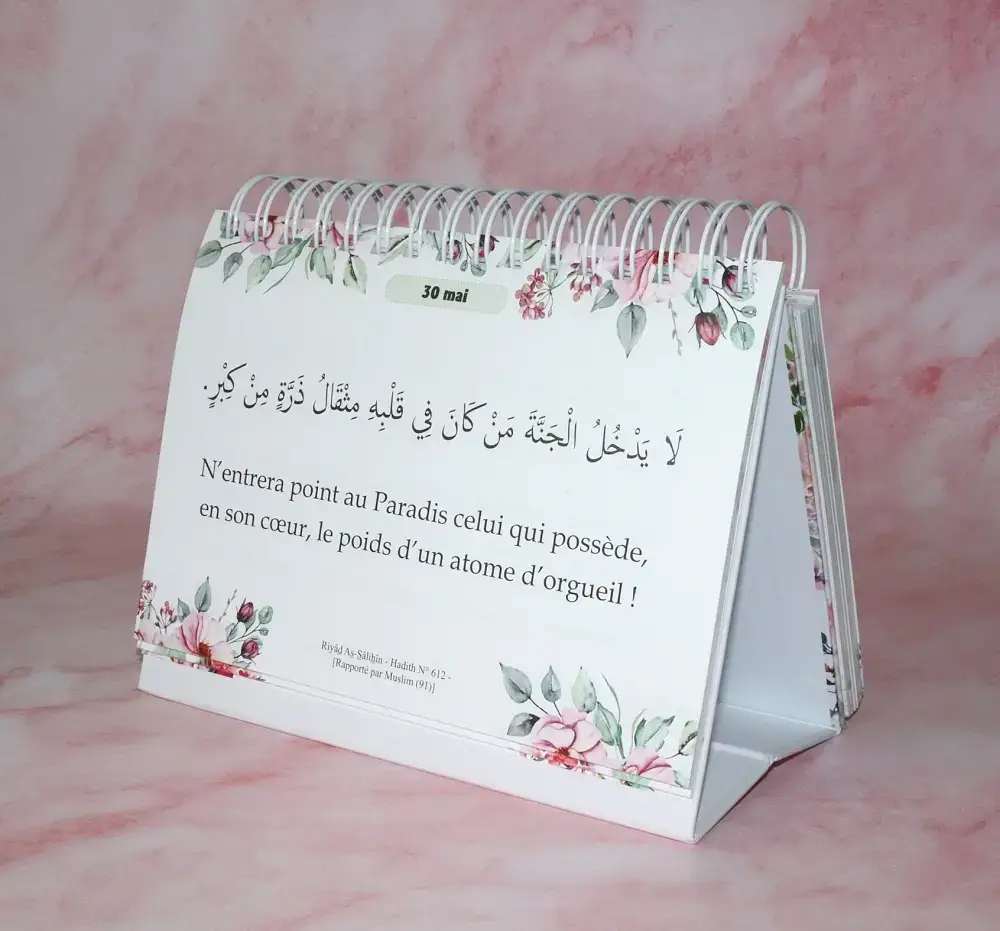 30 mai
لَا يَدْخُلُ الْجَنَّةَ مَنْ كَانَ فِي قَلْبِهِ مِثْقَالُ ذَرَّةٍ مِنْ كِبْرٍ.
N’entrera point au Paradis celui qui possède,
en son cœur, le poids d’un atome d’orgueil !
Riyâḍ Aṣ-Ṣâliḥîn - Hadith N° 612 -
[Rapporté par Muslim (91)]